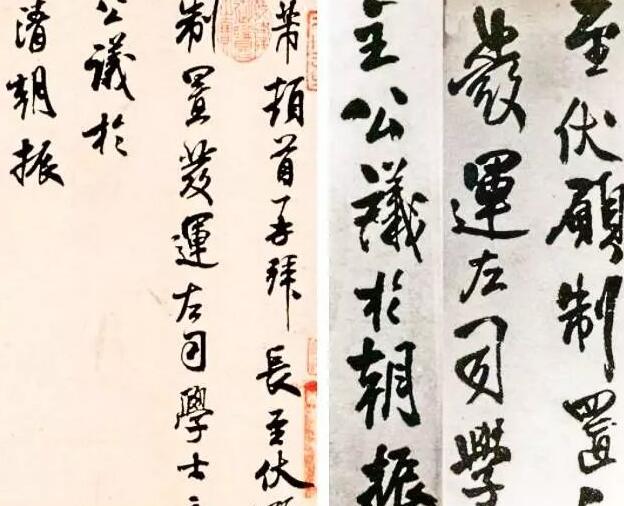 芾頓首再拜長至伏
制置發運左司學士
公議於
清朝振
至伏願制置
發運左司學
主公議於朝振